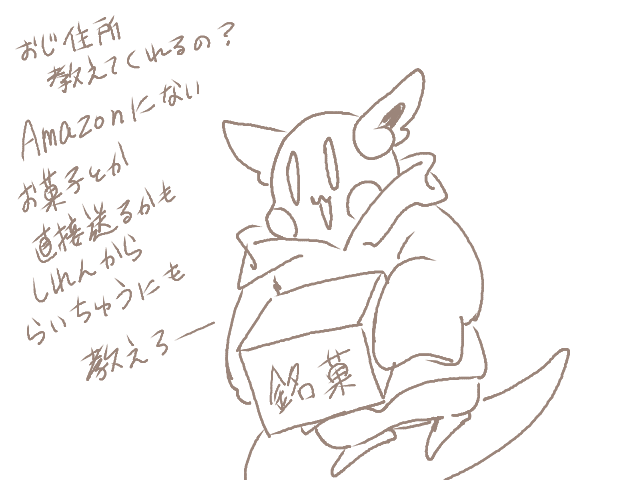 おじ住所
教えてくれるの？
Amazonにない
お菓子とか
直接送るかも
しれんから
らいちゅうにも
教えろー
銘菓